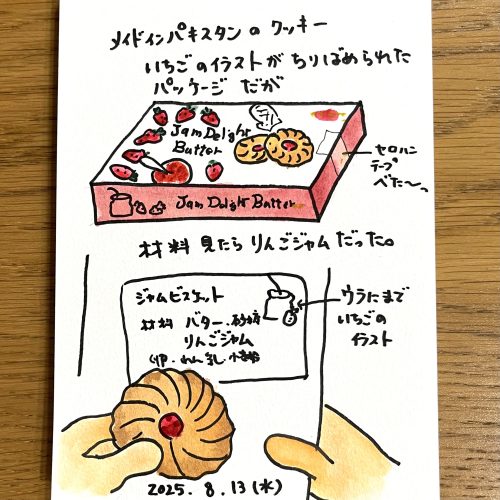 メイドインパキスタンの クッキー
いちごのイラストが ちりばめられた
パッケージ だが
Jam Delight
Butter
セロハン
テープ
べた〜っ
Jam Delight Butter
材料 見たら りんごジャム だった。
ジャムビスケット
材料 バター、砂糖
りんごジャム
ウラにまで
いちごの
イラスト
2025. 8. 13 (水)